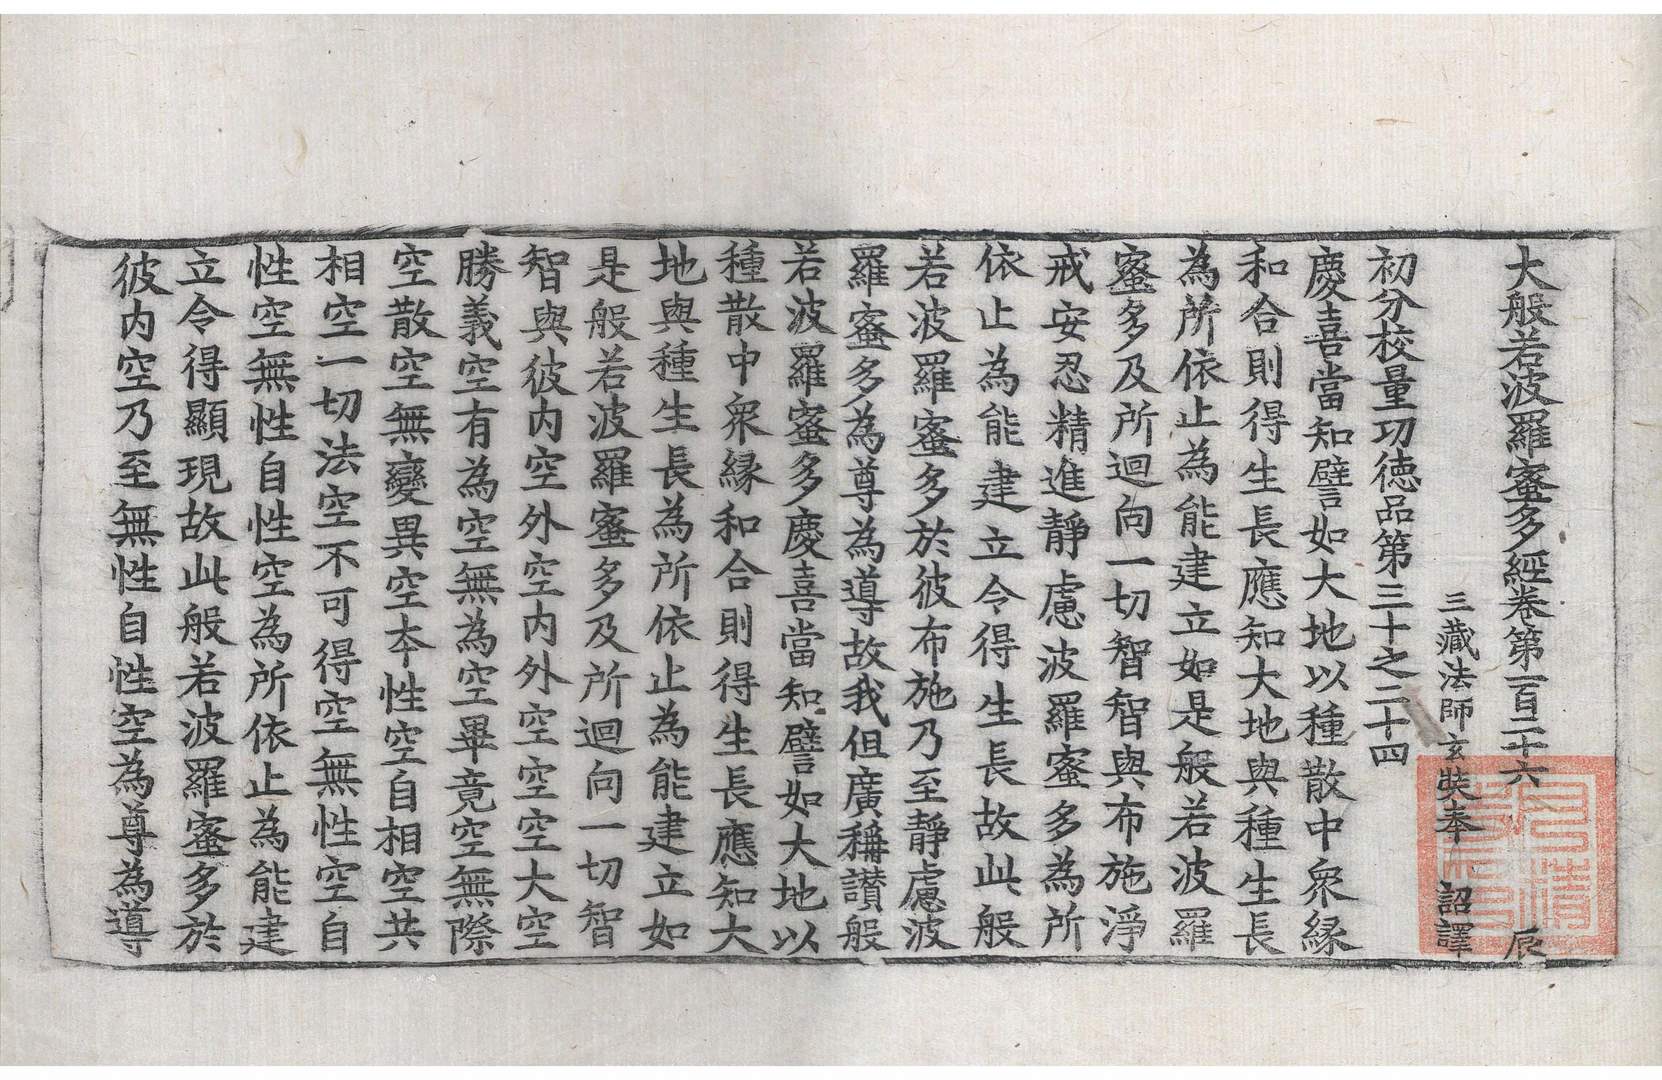 大般若波羅蜜多經卷第一百二十六 辰
三藏法師玄奘奉 詔譯
初分校量功德品第三十之二十四
慶喜當知譬如大地以種散中衆縁
和合則得生長應知大地與種生長
為所依止為能建立如是般若波羅
蜜多及所迴向一切智智與布施淨
戒安忍精進靜慮波羅蜜多為所
依止為能建立令得生長故此般
若波羅蜜多於彼布施乃至靜慮波
羅蜜多為尊為導故我但廣稱讃般
若波羅蜜多慶喜當知譬如大地以
種散中衆縁和合則得生長應知大
地與種生長為所依止為能建立如
是般若波羅蜜多及所迴向一切智
智與彼内空外空内外空空空大空
勝義空有為空無為空畢竟空無際
空散空無變異空本性空自相空共
相空一切法空不可得空無性空自
性空無性自性空為所依止為能建
立令得顯現故此般若波羅蜜多於
彼内空乃至無性自性空為尊為導